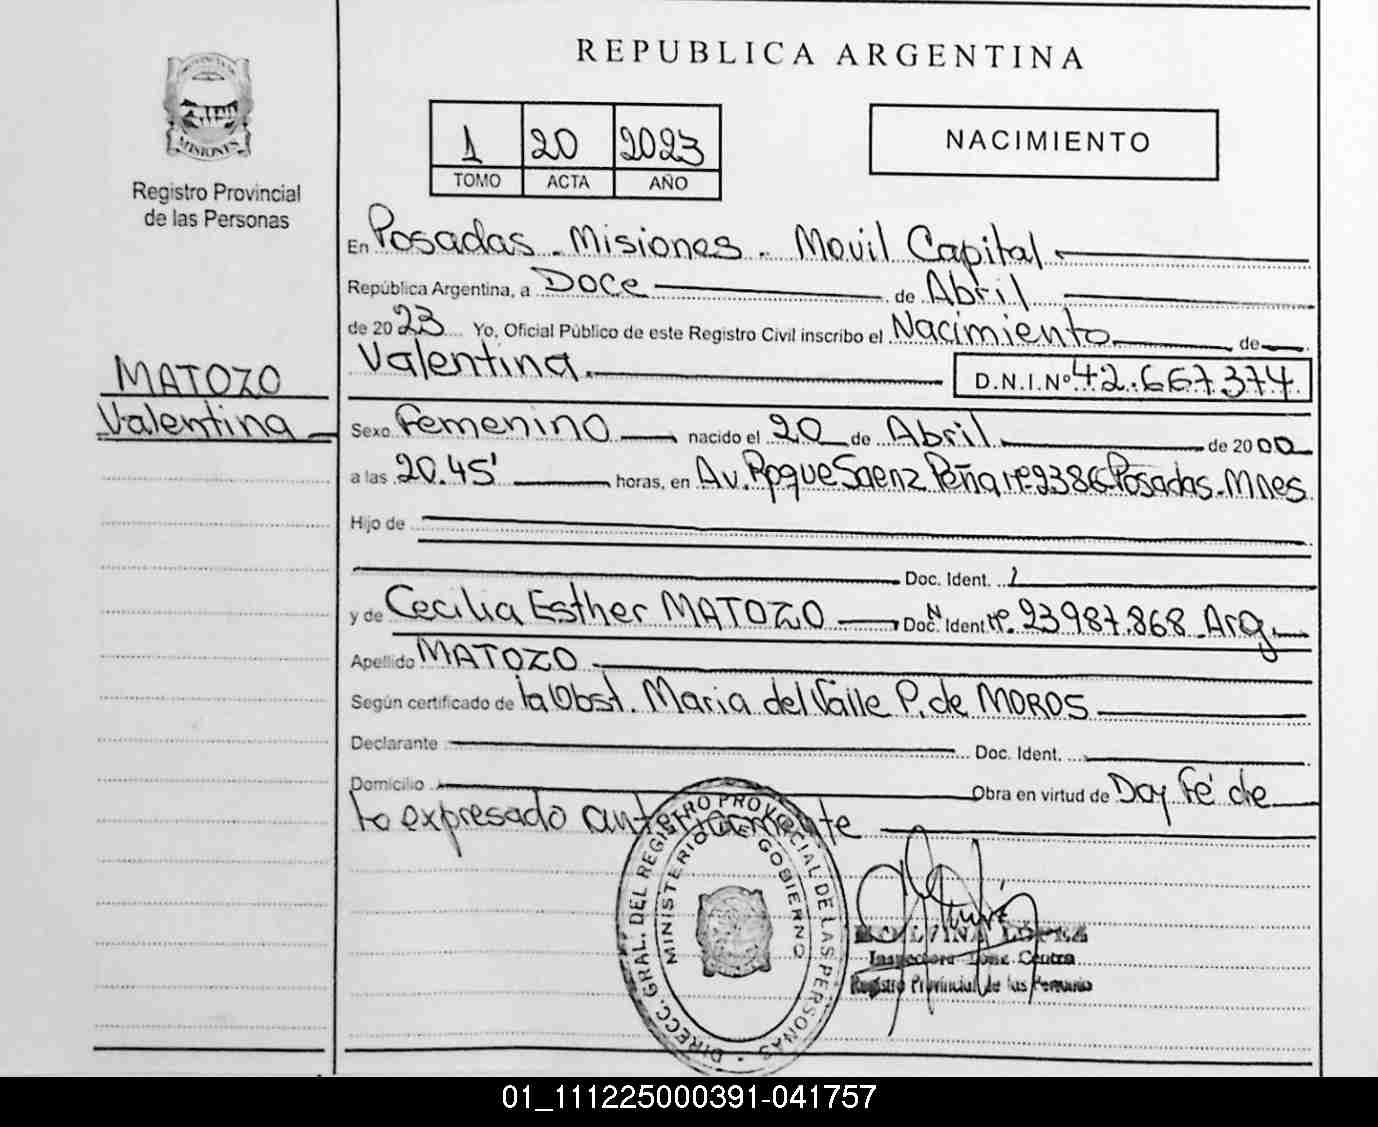 REPUBLICA ARGENTINA
MISIONES
Registro Provincial
de las Personas
1 20 2023
TOMO ACTA AÑO
NACIMIENTO
En Posadas - Misiones - Movil Capital
República Argentina, a Doce de Abril
de 2023 Yo, Oficial Público de este Registro Civil inscribo el Nacimiento de
Valentina. D.N.I.Nº 42.667.374.
MATOZO
Valentina
Sexo Femenino nacido el 20 de Abril de 2000
a las 20.45' horas, en Av. Roque Saenz Peña Nº 2386 Posadas - Mnes
Hijo de
Doc. Ident.
y de Cecilia Esther MATOZO Doc. N Ident Nº. 23.987.868 Arg.
Apellido MATOZO
Según certificado de la Obst. Maria del Valle P. de MOROS
Declarante Doc. Ident.
Domicilio Obra en virtud de Doy Fé de
lo expresado anteriormente
DIRECC. GRAL. DEL REGISTRO PROVINCIAL DE LAS PERSONAS
MINISTERIO DE GOBIERNO
LOPEZ
Inspectora Zona Centro
Registro Provincial de las Personas
01_111225000391-041757